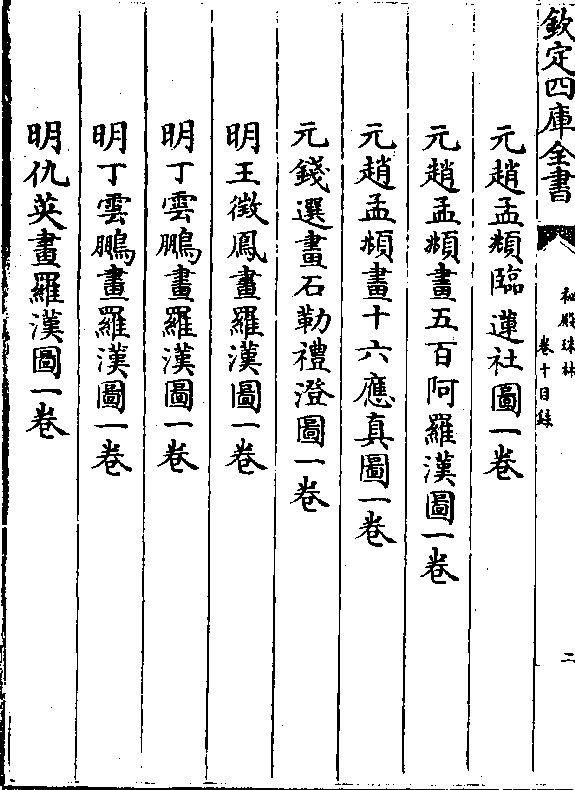 欽定四庫全書
秘殿珠林
卷十目録
二
元趙孟頫臨蓮社圖一卷
元趙孟頫畫五百阿羅漢圖一卷
元趙孟頫畫十六應真圖一卷
元錢選畫石勒禮澄圖一卷
明王徵鳳畫羅漢圖一卷
明丁雲鵬畫羅漢圖一卷
明丁雲鵬畫羅漢圖一卷
明仇英畫羅漢圖一卷